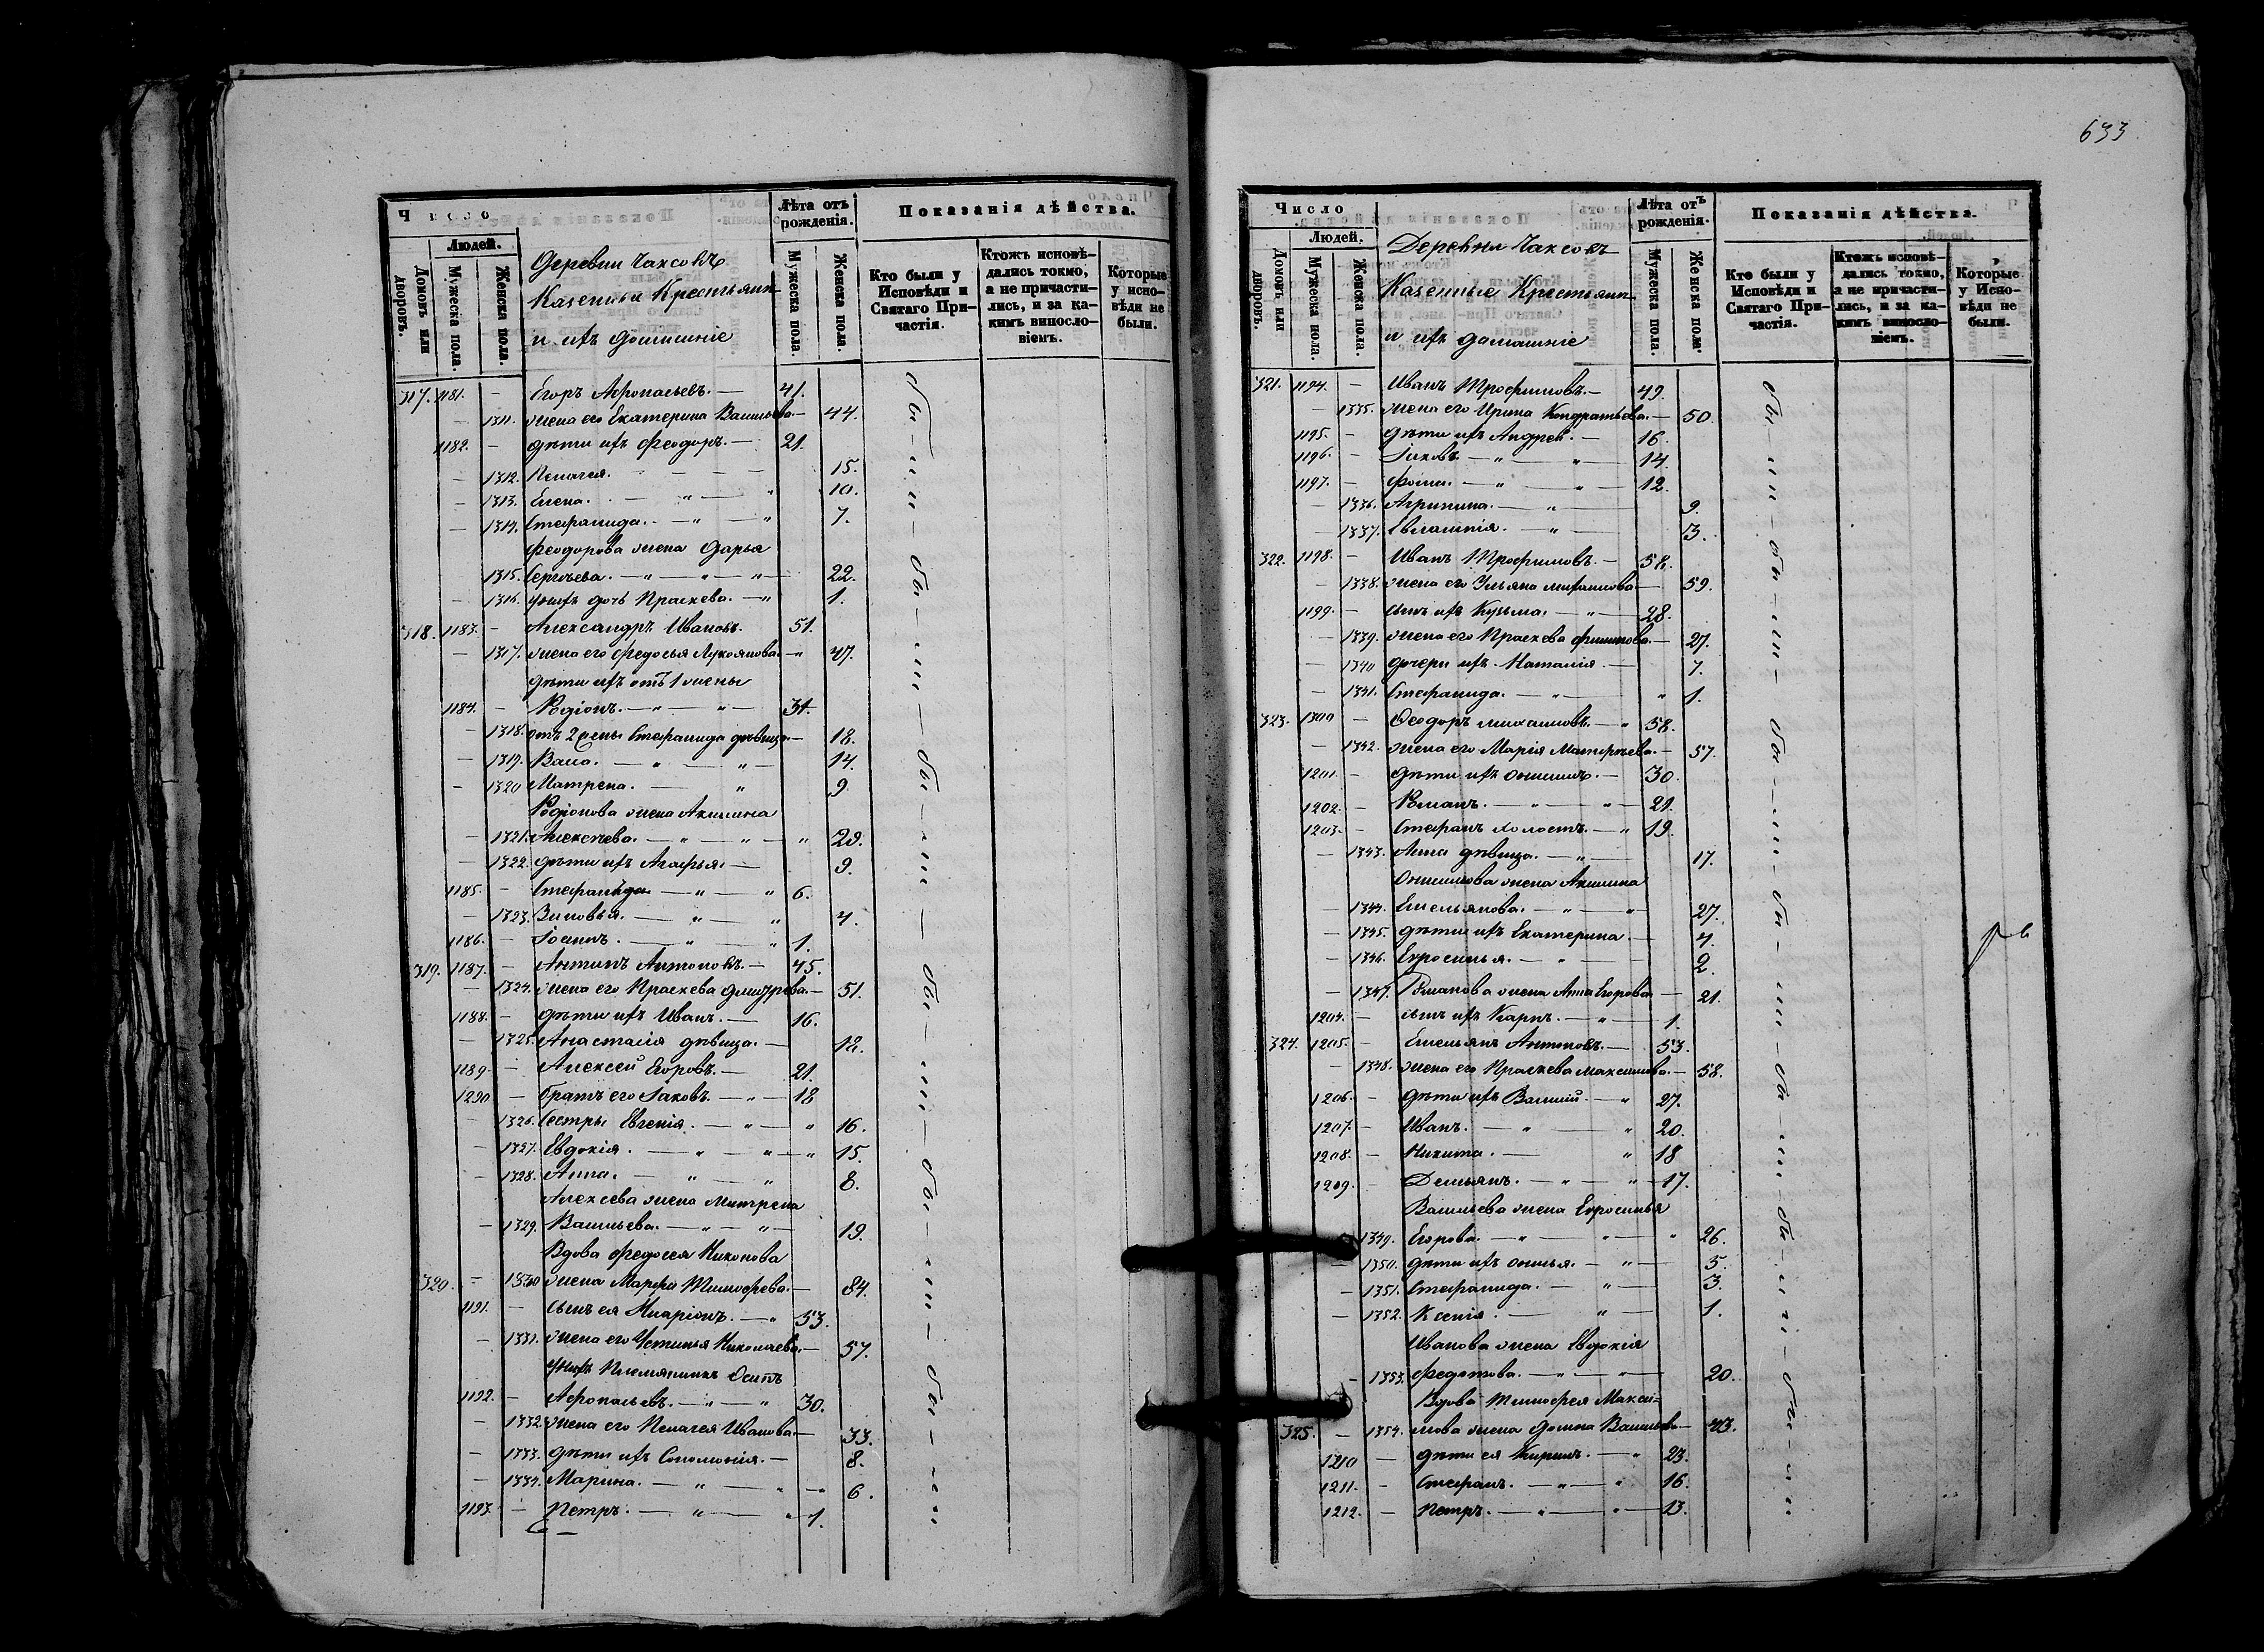 633
Число
Людей.
Домовъ или дворовъ.
Мужеска пола.
Женска пола.
Деревни Чаксовъ
Казенныи Крестьяни
и ихъ домашніе
Лѣта отъ рожденія.
Мужеска пола.
Женска пола.
Показанія дѣйства.
Кто были у Исповѣди и Святаго Причастія.
Ктожъ исповѣдались токмо, а не причастились, и за какимъ винословіемъ.
Которые у исповѣди не были.
317. 1181. – Егоръ Афонасьевъ. – 41.
– 1311. жена его Екатерина Васильева – 44.
1182. – дѣти ихъ Феодоръ. – 21.
– 1312. Пелагея. – – – 15.
– 1313. Елена. – " – " 10.
– 1314. Стефанида. – " – " 7.
Феодорова жена Дарья
1315. Сергѣева. – " – " – " – 22.
– 1316. у нихъ дочь Праскева. – " 1.
318. 1183. – Александръ Ивановъ. 51.
– 1317. жена его Федосья Лукоянова. – " 47.
дѣти ихъ отъ 1 жены
1184. – Родіонъ. – " – " – 31.
– 1318. отъ 2 жены Стефанида дѣвица – 18.
– 1319. Васса. – " – " – 14.
– 1320 Матрена. – " 9
Родіонова жена Акилина
– 1321. Алексѣева. – " – " – " 29.
– 1322. дѣти ихъ Агафья. – 9.
1185. – Стефанида – " – " 6.
– 1323. Зиновья. – " – " 4.
1186. – Іоаннъ. – " – " 1.
319. 1187. – Антипъ Антоновъ. – 45.
– 1324. жена его Праскева Дмитрева. – 51.
1188. – дѣти ихъ Иванъ. – 16.
– 1325. Анастасія дѣвица. – 18.
1189 – Алексей Егоровъ. – 21.
1290 – братъ его Іаковъ. – " – 18
– 1326. Сестры Евгенія. – " – " 16.
– 1327. Евдокія. – " – " – " 15.
– 1328. Анна. – " – " 8.
Алексеева жена Матрена
– 1329. Васильева. – " – " – 19.
Вдова Федосея Никонова
320. – 1330 жена Марфа Тимофеева. – 84.
1191. – сынъ ея Иларіонъ. – " 53.
– 1331. жена его Устинья Николаева. – 57.
у нихъ племянникъ Осипъ
1192. – Афонасьевъ. – " – " 30.
– 1332. жена его Пелагея Иванова. – 33.
– 1333. дѣти ихъ Соломонія. – 8.
– 1334. Марина. – " – " – " 6.
1193. – Петръ. – " – " – 1.
бы – ли – бы – ли – бы – ли – бы – ли – бы – ли – бы – ли
Число
Людей.
Домовъ или дворовъ.
Мужеска пола.
Женска пола.
Деревня Чаксовъ
Казенные Крестьяни
и ихъ домашніе
Лѣта отъ рожденія.
Мужеска пола.
Женска пола.
Показанія дѣйства.
Кто были у Исповѣди и Святаго Причастія.
Ктожъ исповѣдались токмо, а не причастились, и за какимъ винословіемъ.
Которые у Исповѣди не были.
321. 1194. – Иванъ Трофимовъ. – 49.
– 1335. жена его Ирина Кондратьева. – 50.
1195. – дѣти ихъ Андрей. – 16.
1196. – Іаковъ – " – " – 14.
1197. – Фома. – " – " – 12.
– 1336. Агрипина. – " – 9.
– 1337. Евлампія. – " – 3.
322. 1198. – Иванъ Трофимовъ. – 58.
– 1338. жена его Ульяна – 59.
1199. – сынъ ихъ Кузьма. – " – 28.
– 1339. жена его Праскева Филипова. – 27.
– 1340 дочери ихъ Наталія. – 7.
– 1341. Стефанида. – " – " 1.
323. 1300 – Феодоръ Михаиловъ. – " 58.
– 1342. жена его Марія Матфѣева. – 57.
1201. – дѣти ихъ Онисимъ. – 30.
1202. – Романъ. – " – " – 21.
1203. – Стефанъ холостъ. – " 19.
– 1343. Анна дѣвица. – " – 17.
Онисимова жена Акилина
– 1344. Емельянова. – " – " 27.
– 1345. дѣти ихъ Екатерина. – 4.
– 1346. Евросинья. – " – 2.
– 1347. Романова жена Анна Егорова – 21.
1204. – сынъ ихъ Карпъ. – " – 1.
324. 1205. – Емельянъ Антоновъ. – 53.
– 1348. жена его Праскева Максимова. – 58.
1206. – дѣти ихъ Василій. – " 27.
1207. – Иванъ. – " – " 20.
1208. – Никита. – " 18
1209. – Демьянъ. – " – " – 17.
Васильева жена Евросинья
1349. Егорова. – " – " – " 26.
– 1350. дѣти ихъ – " – 5.
– 1351. Стефанида. – " – 3.
– 1352. Ксенія. – " – 1.
Иванова жена Евдокія
– 1353. Федотова. – " – " – 20.
Вдова Тимофея Макси=
325. – 1354. мова жена Домна Васильева – 43.
1210 – дѣти ея Кирилъ. – " 23.
1211. – Стефанъ. – " – " 16.
1212. – Петръ. – " – " – 13.
бы – ли – бы – ли – бы – ли – бы – ли – бы – ли – бы – ли – бы – ли